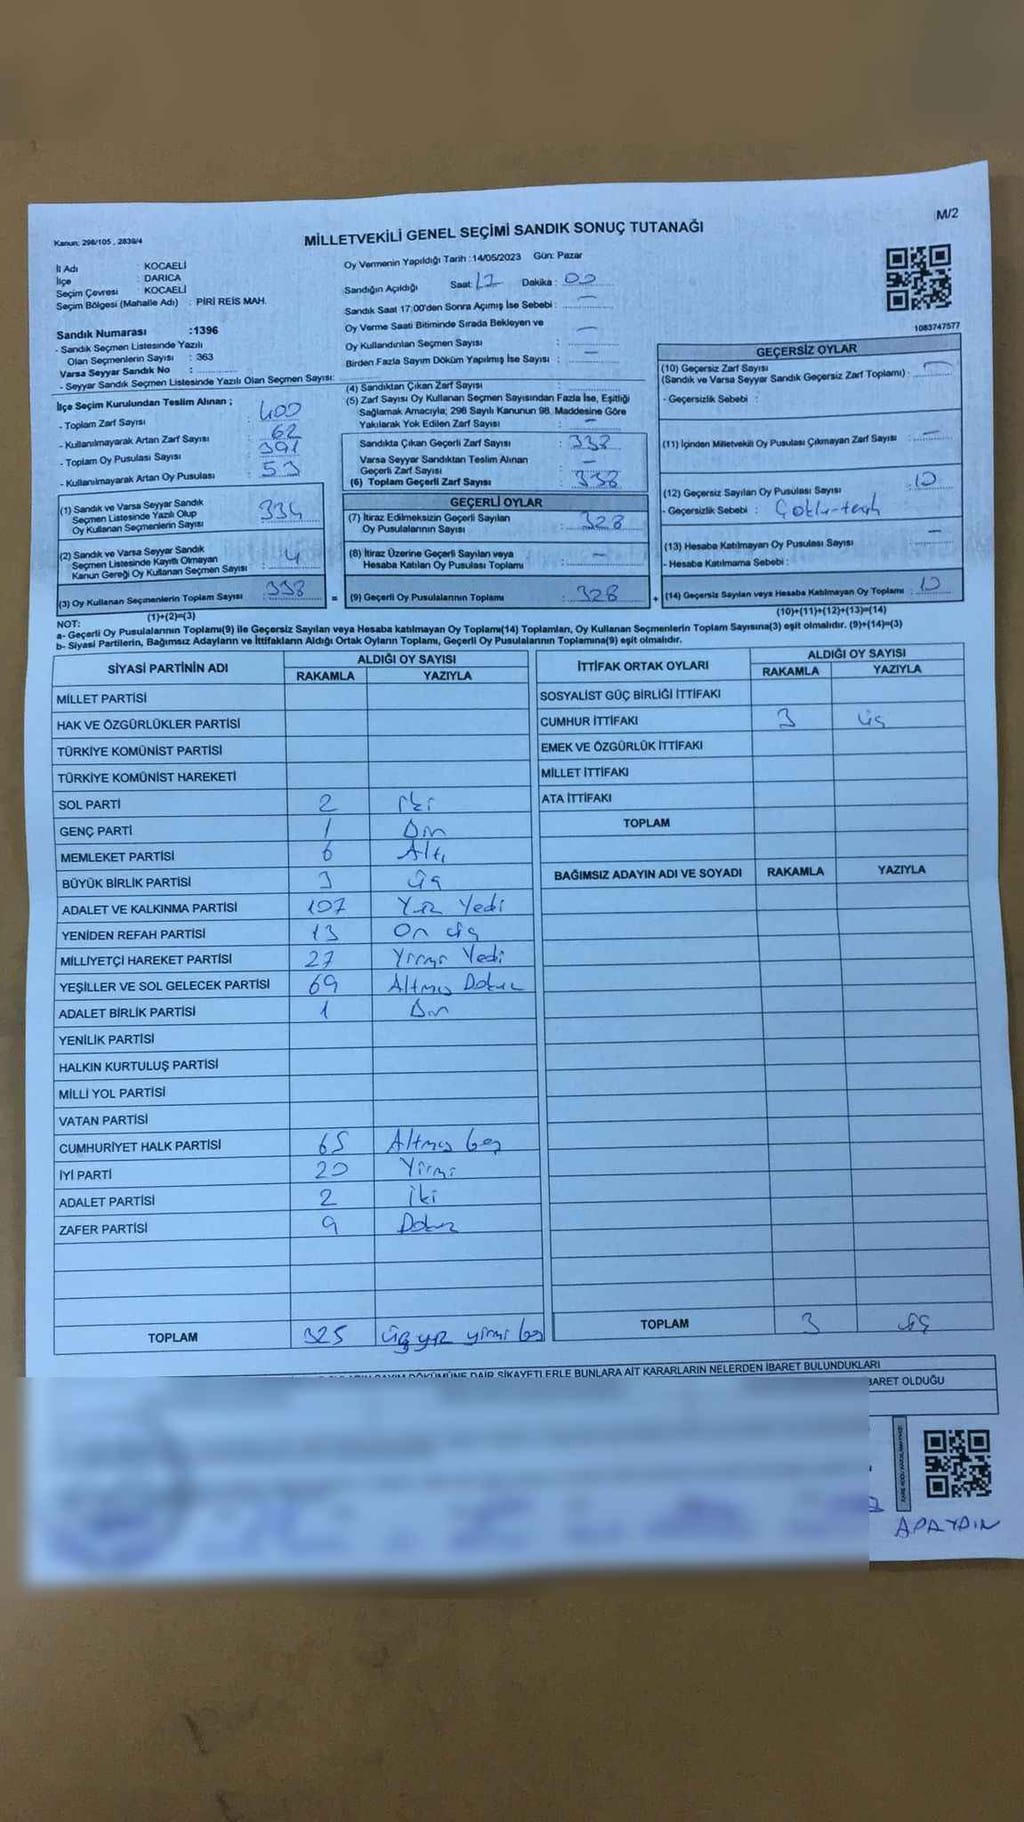 M/2
Kanun: 298/105 , 2839/4
MİLLETVEKİLİ GENEL SEÇİMİ SANDIK SONUÇ TUTANAĞI
İl Adı : KOCAELİ
İlçe : DARICA
Seçim Çevresi : KOCAELİ
Seçim Bölgesi (Mahalle Adı) : PİRİ REİS MAH.
Sandık Numarası :1396
- Sandık Seçmen Listesinde Yazılı
Olan Seçmenlerin Sayısı : 363
Varsa Seyyar Sandık No :
- Seyyar Sandık Seçmen Listesinde Yazılı Olan Seçmen Sayısı:
Oy Vermenin Yapıldığı Tarih :14/05/2023 Gün: Pazar
Sandığın Açıldığı Saat: 17 Dakika : 00
Sandık Saat 17:00'den Sonra Açımış İse Sebebi : —
Oy Verme Saati Bitiminde Sırada Bekleyen ve
Oy Kullandırılan Seçmen Sayısı : —
Birden Fazla Sayım Döküm Yapılmış İse Sayısı : —
1083747577
İlçe Seçim Kurulundan Teslim Alınan ;
- Toplam Zarf Sayısı : 400
- Kullanılmayarak Artan Zarf Sayısı : 62
- Toplam Oy Pusulası Sayısı : 391
- Kullanılmayarak Artan Oy Pusulası : 53
(1) Sandık ve Varsa Seyyar Sandık
Seçmen Listesinde Yazılı Olup
Oy Kullanan Seçmenlerin Sayısı : 334
(2) Sandık ve Varsa Seyyar Sandık
Seçmen Listesinde Kayıtlı Olmayan
Kanun Gereği Oy Kullanan Seçmen Sayısı : 4
(3) Oy Kullanan Seçmenlerin Toplam Sayısı : 338
(1)+(2)=(3)
(4) Sandıktan Çıkan Zarf Sayısı :
(5) Zarf Sayısı Oy Kullanan Seçmen Sayısından Fazla İse, Eşitliği
Sağlamak Amacıyla; 298 Sayılı Kanunun 98. Maddesine Göre
Yakılarak Yok Edilen Zarf Sayısı : —
Sandıkta Çıkan Geçerli Zarf Sayısı : 338
Varsa Seyyar Sandıktan Teslim Alınan
Geçerli Zarf Sayısı : —
(6) Toplam Geçerli Zarf Sayısı : 338
GEÇERLİ OYLAR
(7) İtiraz Edilmeksizin Geçerli Sayılan
Oy Pusulalarının Sayısı : 328
(8) İtiraz Üzerine Geçerli Sayılan veya
Hesaba Katılan Oy Pusulası Toplamı : —
= (9) Geçerli Oy Pusulalarının Toplamı : 328 +
GEÇERSİZ OYLAR
(10) Geçersiz Zarf Sayısı
(Sandık ve Varsa Seyyar Sandık Geçersiz Zarf Toplamı) : —
- Geçersizlik Sebebi :
(11) İçinden Milletvekili Oy Pusulası Çıkmayan Zarf Sayısı : —
(12) Geçersiz Sayılan Oy Pusulası Sayısı : 10
- Geçersizlik Sebebi :
(13) Hesaba Katılmayan Oy Pusulası Sayısı : —
- Hesaba Katılmama Sebebi :
(14) Geçersiz Sayılan veya Hesaba Katılmayan Oy Toplamı : 10
(10)+(11)+(12)+(13)=(14)
NOT:
a- Geçerli Oy Pusulalarının Toplamı(9) ile Geçersiz Sayılan veya Hesaba katılmayan Oy Toplamı(14) Toplamları, Oy Kullanan Seçmenlerin Toplam Sayısına(3) eşit olmalıdır. (9)+(14)=(3)
b- Siyasi Partilerin, Bağımsız Adayların ve İttifakların Aldığı Ortak Oyların Toplamı, Geçerli Oy Pusulalarının Toplamına(9) eşit olmalıdır.
SİYASİ PARTİNİN ADI ALDIĞI OY SAYISI
RAKAMLA YAZIYLA
MİLLET PARTİSİ
HAK VE ÖZGÜRLÜKLER PARTİSİ
TÜRKİYE KOMÜNİST PARTİSİ
TÜRKİYE KOMÜNİST HAREKETİ
SOL PARTİ 2 iki
GENÇ PARTİ 1 Bir
MEMLEKET PARTİSİ 6 Altı
BÜYÜK BİRLİK PARTİSİ 3 üç
ADALET VE KALKINMA PARTİSİ 107 Yüz Yedi
YENİDEN REFAH PARTİSİ 13 On üç
MİLLİYETÇİ HAREKET PARTİSİ 27 Yirmi Yedi
YEŞİLLER VE SOL GELECEK PARTİSİ 69 Altmış Dokuz
ADALET BİRLİK PARTİSİ 1 Bir
YENİLİK PARTİSİ
HALKIN KURTULUŞ PARTİSİ
MİLLİ YOL PARTİSİ
VATAN PARTİSİ
CUMHURİYET HALK PARTİSİ 65 Altmış beş
İYİ PARTİ 20 Yirmi
ADALET PARTİSİ 2 iki
ZAFER PARTİSİ 9 Dokuz
TOPLAM 325 üçyüz yirmi beş
İTTİFAK ORTAK OYLARI ALDIĞI OY SAYISI
RAKAMLA YAZIYLA
SOSYALİST GÜÇ BİRLİĞİ İTTİFAKI
CUMHUR İTTİFAKI 3 üç
EMEK VE ÖZGÜRLÜK İTTİFAKI
MİLLET İTTİFAKI
ATA İTTİFAKI
TOPLAM
BAĞIMSIZ ADAYIN ADI VE SOYADI RAKAMLA YAZIYLA
TOPLAM 3 üç
DÖKÜMÜNE DAİR ŞİKAYETLERLE BUNLARA AİT KARARLARIN NELERDEN İBARET BULUNDUKLARI
BARET OLDUĞU
APAYDIN